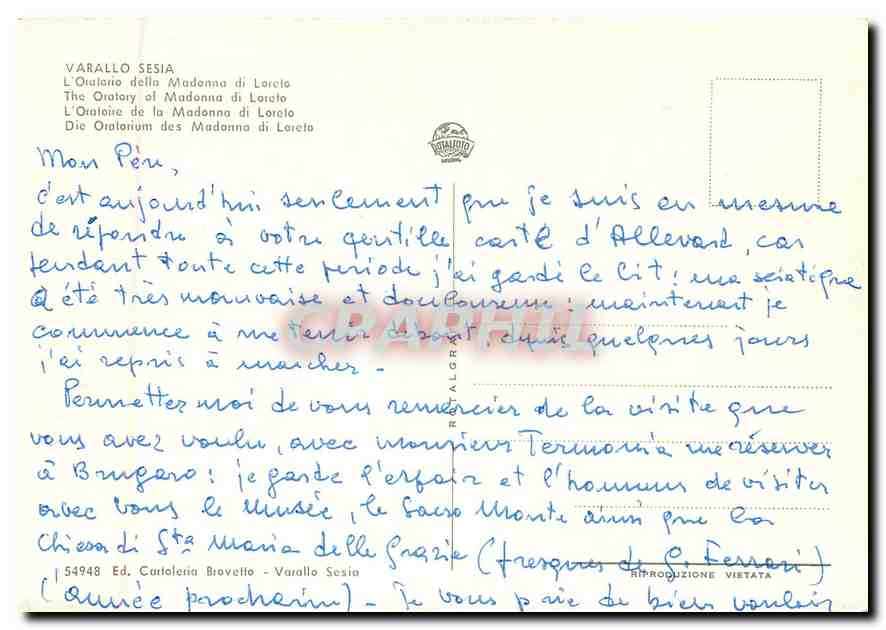 VARALLO SESIA
L'Oratorio della Madonna di Loreto
The Oratory of Madonna di Loreto
L'Oratoire de la Madonna di Loreto
Die Oratorium des Madonna di Loreto
ROTALFOTO
Mon Père,
c'est aujourd'hui seulement que je suis en mesure
de répondre à votre gentille carte d'Allevard, car
pendant toute cette période j'ai gardé le lit : ma sciatique
a été très mauvaise et douloureuse : maintenant je
commence à me tenir debout, depuis quelques jours
j'ai repris à marcher -
Permettez moi de vous remercier de la visite que
vous avez voulu, avec monsieur Termonia me réserver
à Brugaro : je garde l'espoir et l'honneur de visiter
avec vous le musée, le Sacro Monte ainsi que la
Chiesa di Sta Maria delle Grazie (fresques de G. Ferrari)
(année prochaine) - Je vous prie de bien vouloir
54948 Ed. Cartoleria Brovetto - Varallo Sesia
RIPRODUZIONE VIETATA
ROTALGRAF
CPAPHIL